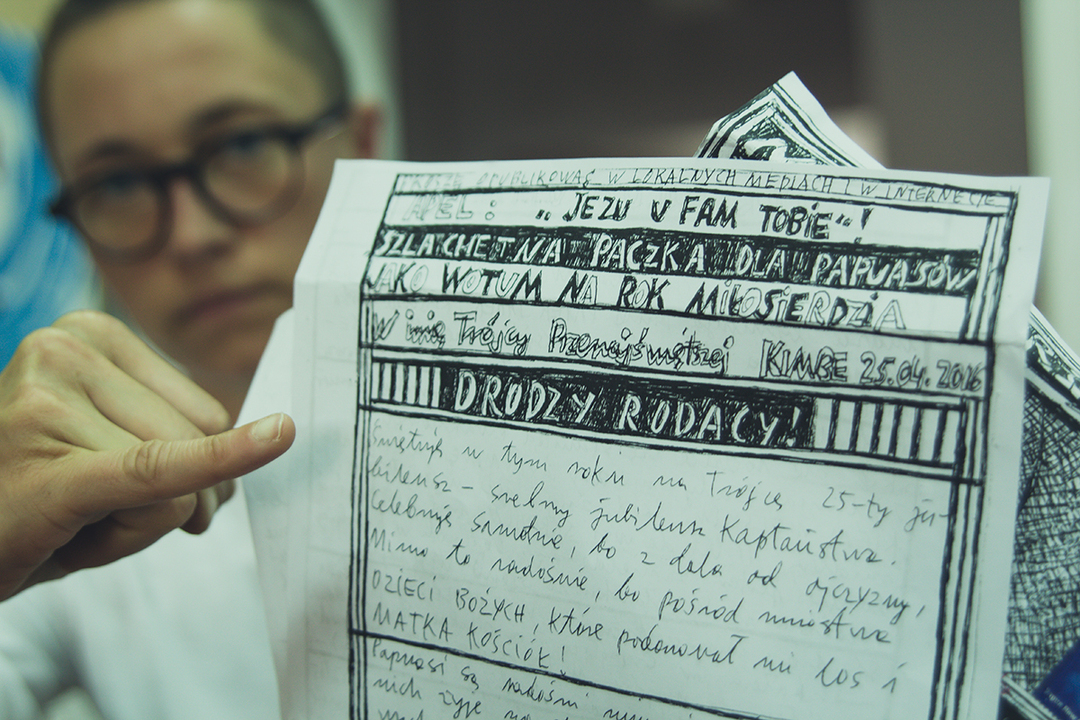 PROSZĘ OPUBLIKOWAĆ W LOKALNYCH MEDIACH I W INTERNECIE
APEL: „JEZU UFAM TOBIE"!
SZLACHETNA PACZKA DLA PAPUASÓW
JAKO WOTUM NA ROK MIŁOSIERDZIA
W imię Trójcy Przenajświętszej KIMBE 25.04.2016
DRODZY RODACY!
Świętuję w tym roku na Trójcę 25-ty ju-
bileusz - srebrny jubileusz Kapłaństwa.
Celebruję samotnie, bo z dala od ojczyzny,
Mimo to radośnie, bo pośród mnóstwa
DZIECI BOŻYCH, które podarował mi los i
MATKA KOŚCIÓŁ!
Papuasi są radośni
nich żyje